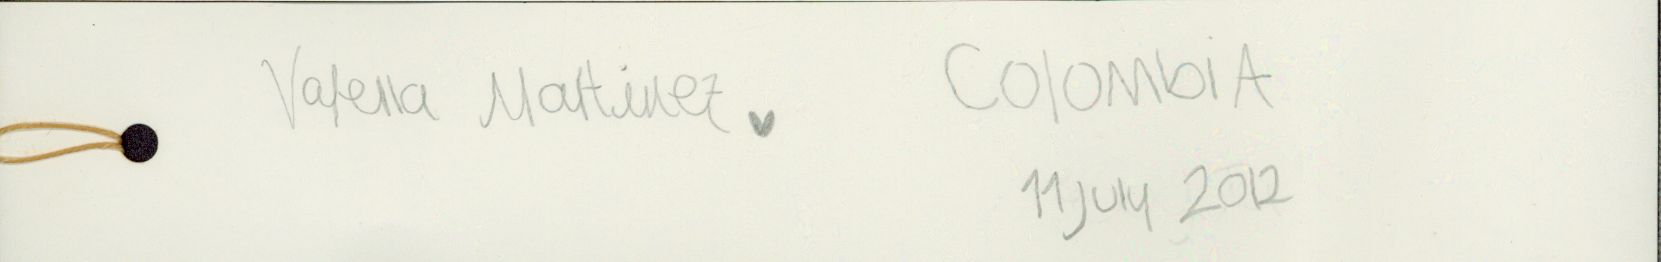 Valeria Martinez ♥ COlOMbiA
11 July 2012